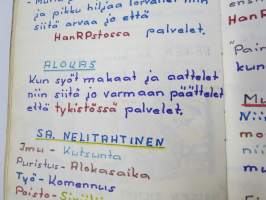 ja pikku hiljaa
siitä arvaa jo että
HanRPstossa palvelet.
ALOKAS
Kun syöt makaat ja aattelet
niin siitä jo varmaan päättelet
että tykistössä palvelet.
SA. NELITAHTINEN
Imu - Kutsunta
Puristus - Alokasaika
Työ - Komennus
Poisto -